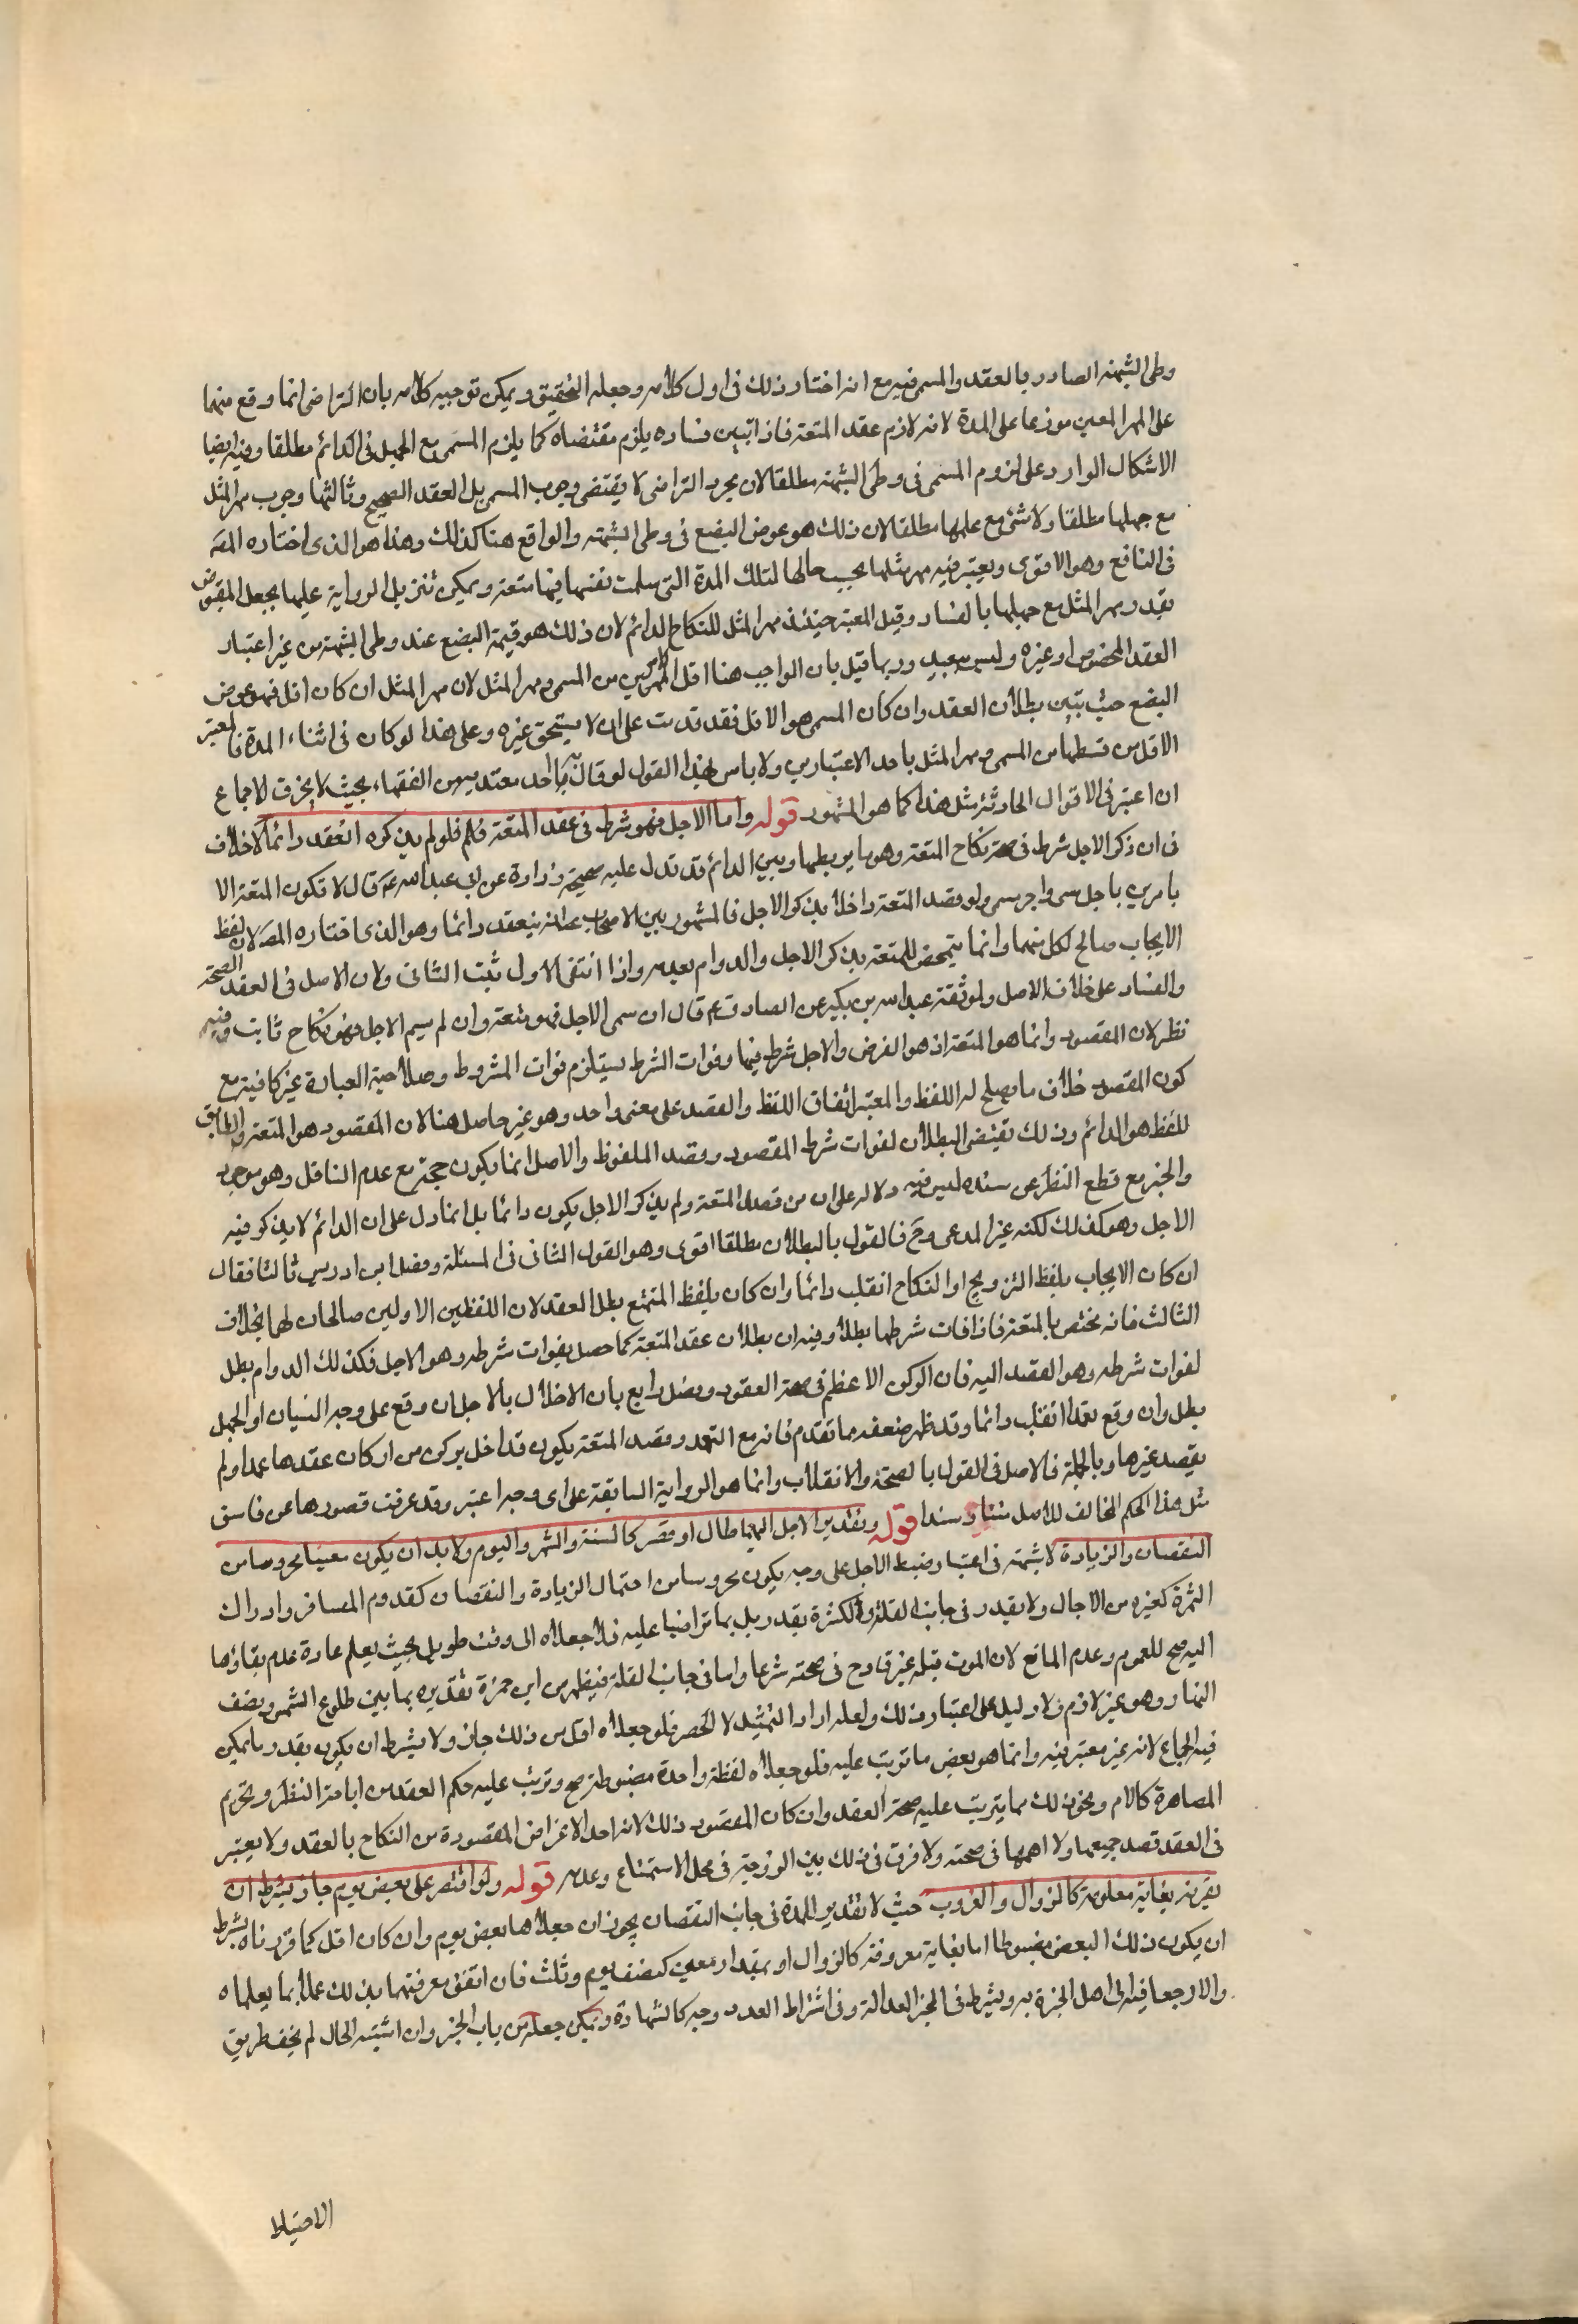 وطى الشبهة الصادر بالعقد والمسمى فيه مع انه اختار ذلك فى اول كلامه وجعله التحقيق ويمكن توجيه كلامه بان التراضى انما وقع منهما
على المهر المعين موزعا على المدة لانه لازم عقد المتعة فاذا تبين فساده يلزم مقتضاه كما يلزم المسمى مع الجهل فى الدائم مطلقا وفيه ايضا
الاشكال الوارد على لزوم المسمى فى وطى الشبهة مطلقا لان مجرد التراضى لا يقتضى وجوب المسمى بل العقد الصحيح وثالثها وجوب مهر المثل
مع جهلها مطلقا ولا شئ مع علمها مطلقا لان ذلك هو عوض البضع فى وطى الشبهة والواقع هنا كذلك وهذا هو الذى اختاره المصـ
فى النافع وهو الاقوى ويعتبر فيه مهر مثلها بحسب حالها لتلك المدة التى سلمت نفسها فيها متعة ويمكن تنزيل الرواية عليها بجعل المقبوض
بقدر مهر المثل مع جهلها بالفساد وقيل المعتبر حينئذ مهر المثل للنكاح الدائم لان ذلك هو قيمة البضع عند وطى الشبهة من غير اعتبار
العقد المخصوص او غيره وليس ببعيد وربما قيل بان الواجب هنا اقل الامرين من المسمى ومهر المثل لان مهر المثل ان كان اقل فهو عوض
البضع حيث تبين بطلان العقد وان كان المسمى هو الاقل فقد قدمت على ان لا يستحق غيره وعلى هذا لو كان فى اثناء المدة فالمعتبر
الاقل من قسطها من المسمى ومهر المثل باحد الاعتبارين ولا باس بهذا القول لو قال به احد معتد به من الفقهاء بحيث لا يخرق الاجماع
ان اعتبر فى الاقوال الحادثة مثل هذا كما هو المشهور قوله واما الاجل فهو شرط فى عقد المتعة فلو لم يذكره انعقد دائما لا خلاف
فى ان ذكر الاجل شرط فى صحة نكاح المتعة وهو مايز بينها وبين الدائم قد تدل عليه صحيحة زرارة عن ابى عبد الله ع قال لا تكون المتعة الا
بامرين باجل مسمى واجر مسمى ولو قصد المتعة واخلا بذكر الاجل فالمشهور بين الاصحاب على انه ينعقد دائما وهو الذى اختاره المصـ لان لفظ
الايجاب صالح لكل منهما وانما يتمحض للمتعة بذكر الاجل والدوام بعدمه واذا انتفى الاول ثبت الثانى ولان الاصل فى العقد الصحة
والفساد على خلاف الاصل ولموثقة عبد الله بن بكير عن الصادق ع قال ان سمى الاجل فهو متعة وان لم يسم الاجل فهو نكاح ثابت وفيه
نظر لان المقصود وانما هو المتعة اذ هو الفرض والاجل شرط فيها وفوات الشرط يستلزم فوات المشروط وصلاحية العبارة غير كافية مع
كون المقصود خلاف ما يصلح له اللفظ والمعتبر اتفاق اللفظ والقصد على معنى واحد وهو غير حاصل هنا لان المقصود هو المتعة والمطابق
للفظ هو الدائم وذلك يقتضى البطلان لفوات شرط المقصود وقصد الملفوظ والاصل انما يكون حجة مع عدم الناقل وهو موجود
والخبر مع قطع النظر عن سنده ليس فيه دلالة على ان من قصد المتعة ولم يذكر الاجل يكون دائما بل انما دل على ان الدائم لا يذكر فيه
الاجل وهو كذلك لكنه غير المدعى وح فالقول بالبطلان مطلقا اقوى وهو القول الثانى فى المسئلة وفصل ابن ادريس ثالثا فقال
ان كان الايجاب بلفظ التزويج او النكاح انقلب دائما وان كان بلفظ التمتع بطل العقد لان اللفظين الاولين صالحان لهما بخلاف
الثالث فانه مختص بالمتعة فاذا فات شرطها بطل وفيه ان بطلان عقد المتعة كما حصل بفوات شرطه وهو الاجل فكذلك الدوام بطل
لفوات شرطه وهو القصد اليه فان الركن الاعظم فى صحة العقود وفصل رابع بان الاخلال بالاجل ان وقع على وجه النسيان او الجهل
بطل وان وقع عمدا انقلب دائما وقد ظهر ضعفه مما تقدم فانه مع التعمد وقصد المتعة يكون قد اخل بركن من اركان عقدها عمدا ولم
يقصد غيرها وبالجملة فالاصل فى القول بالصحة والانقلاب وانما هو الرواية السابقة على اى وجه اعتبر وقد عرفت قصورها عن فاسق
مثل هذا الحكم المخالف للاصل متنا وسندا قوله وتقدير الاجل اليهما طال او قصر كالسنة والشهر واليوم ولا بد ان يكون معينا محروسا من
النقصان والزيادة لا شبهة فى اعتبار ضبط الاجل على وجه يكون محروسا من احتمال الزيادة والنقصان كقدوم المسافر وادراك
الثمرة كغيره من الاجال ولا يقدر فى جانب القلة والكثرة بقدر بل بما تراضيا عليه فلو جعلاه الى وقت طويل بحيث يعلم عادة عدم بقاؤها
اليه صح للعموم وعدم المانع لان الموت قبله غير قادح فى صحته شرعا واما فى جانب القلة فيظهر من ابن حمزة تقديره بما بين طلوع الشمس ونصف
النهار وهو غير لازم ولا دليل على اعتبار ذلك ولعله اراد التمثيل لا الحصر فلو جعلاه اقل من ذلك جاز ولا يشترط ان يكون بقدر ما يمكن
فيه الجماع لانه غير معتبر فيه وانما هو بعض ما ترتب عليه فلو جعلاه لحظة واحدة مضبوطة صح وترتب عليه حكم العقد من اباحة النظر وتحريم
المصاهرة كالام ونحو ذلك مما يترتب عليه صحة العقد وان كان المقصود ذلك لانه احد الاغراض المقصودة من النكاح بالعقد ولا يعتبر
فى العقد قصد جميعها ولا اهمها فى صحته ولا فرق فى ذلك بين الزوجة فى محل الاستمتاع وعدمه قوله ولو اقتصر على بعض يوم جاز بشرط ان
يقرنه بغاية معلومة كالزوال والغروب حيث لا تقدير للمدة فى جانب النقصان يجوز ان جعلاها بعض يوم وان كان اقل كما قررناه بشرط
ان يكون ذلك البعض مضبوطا اما بغاية معروفة كالزوال او بمقدار معين كنصف يوم وثلث فان اتفق معرفتهما بذلك عملا بما يعلماه
والا رجعا فيه الى اهل الخبرة به ويشترط فى المخبر العدالة وفى اشتراط العدد وجه كالشهادة ويمكن جعله من باب الخبر وان اشتبه الحال لم يخف طريق
الاحتياط